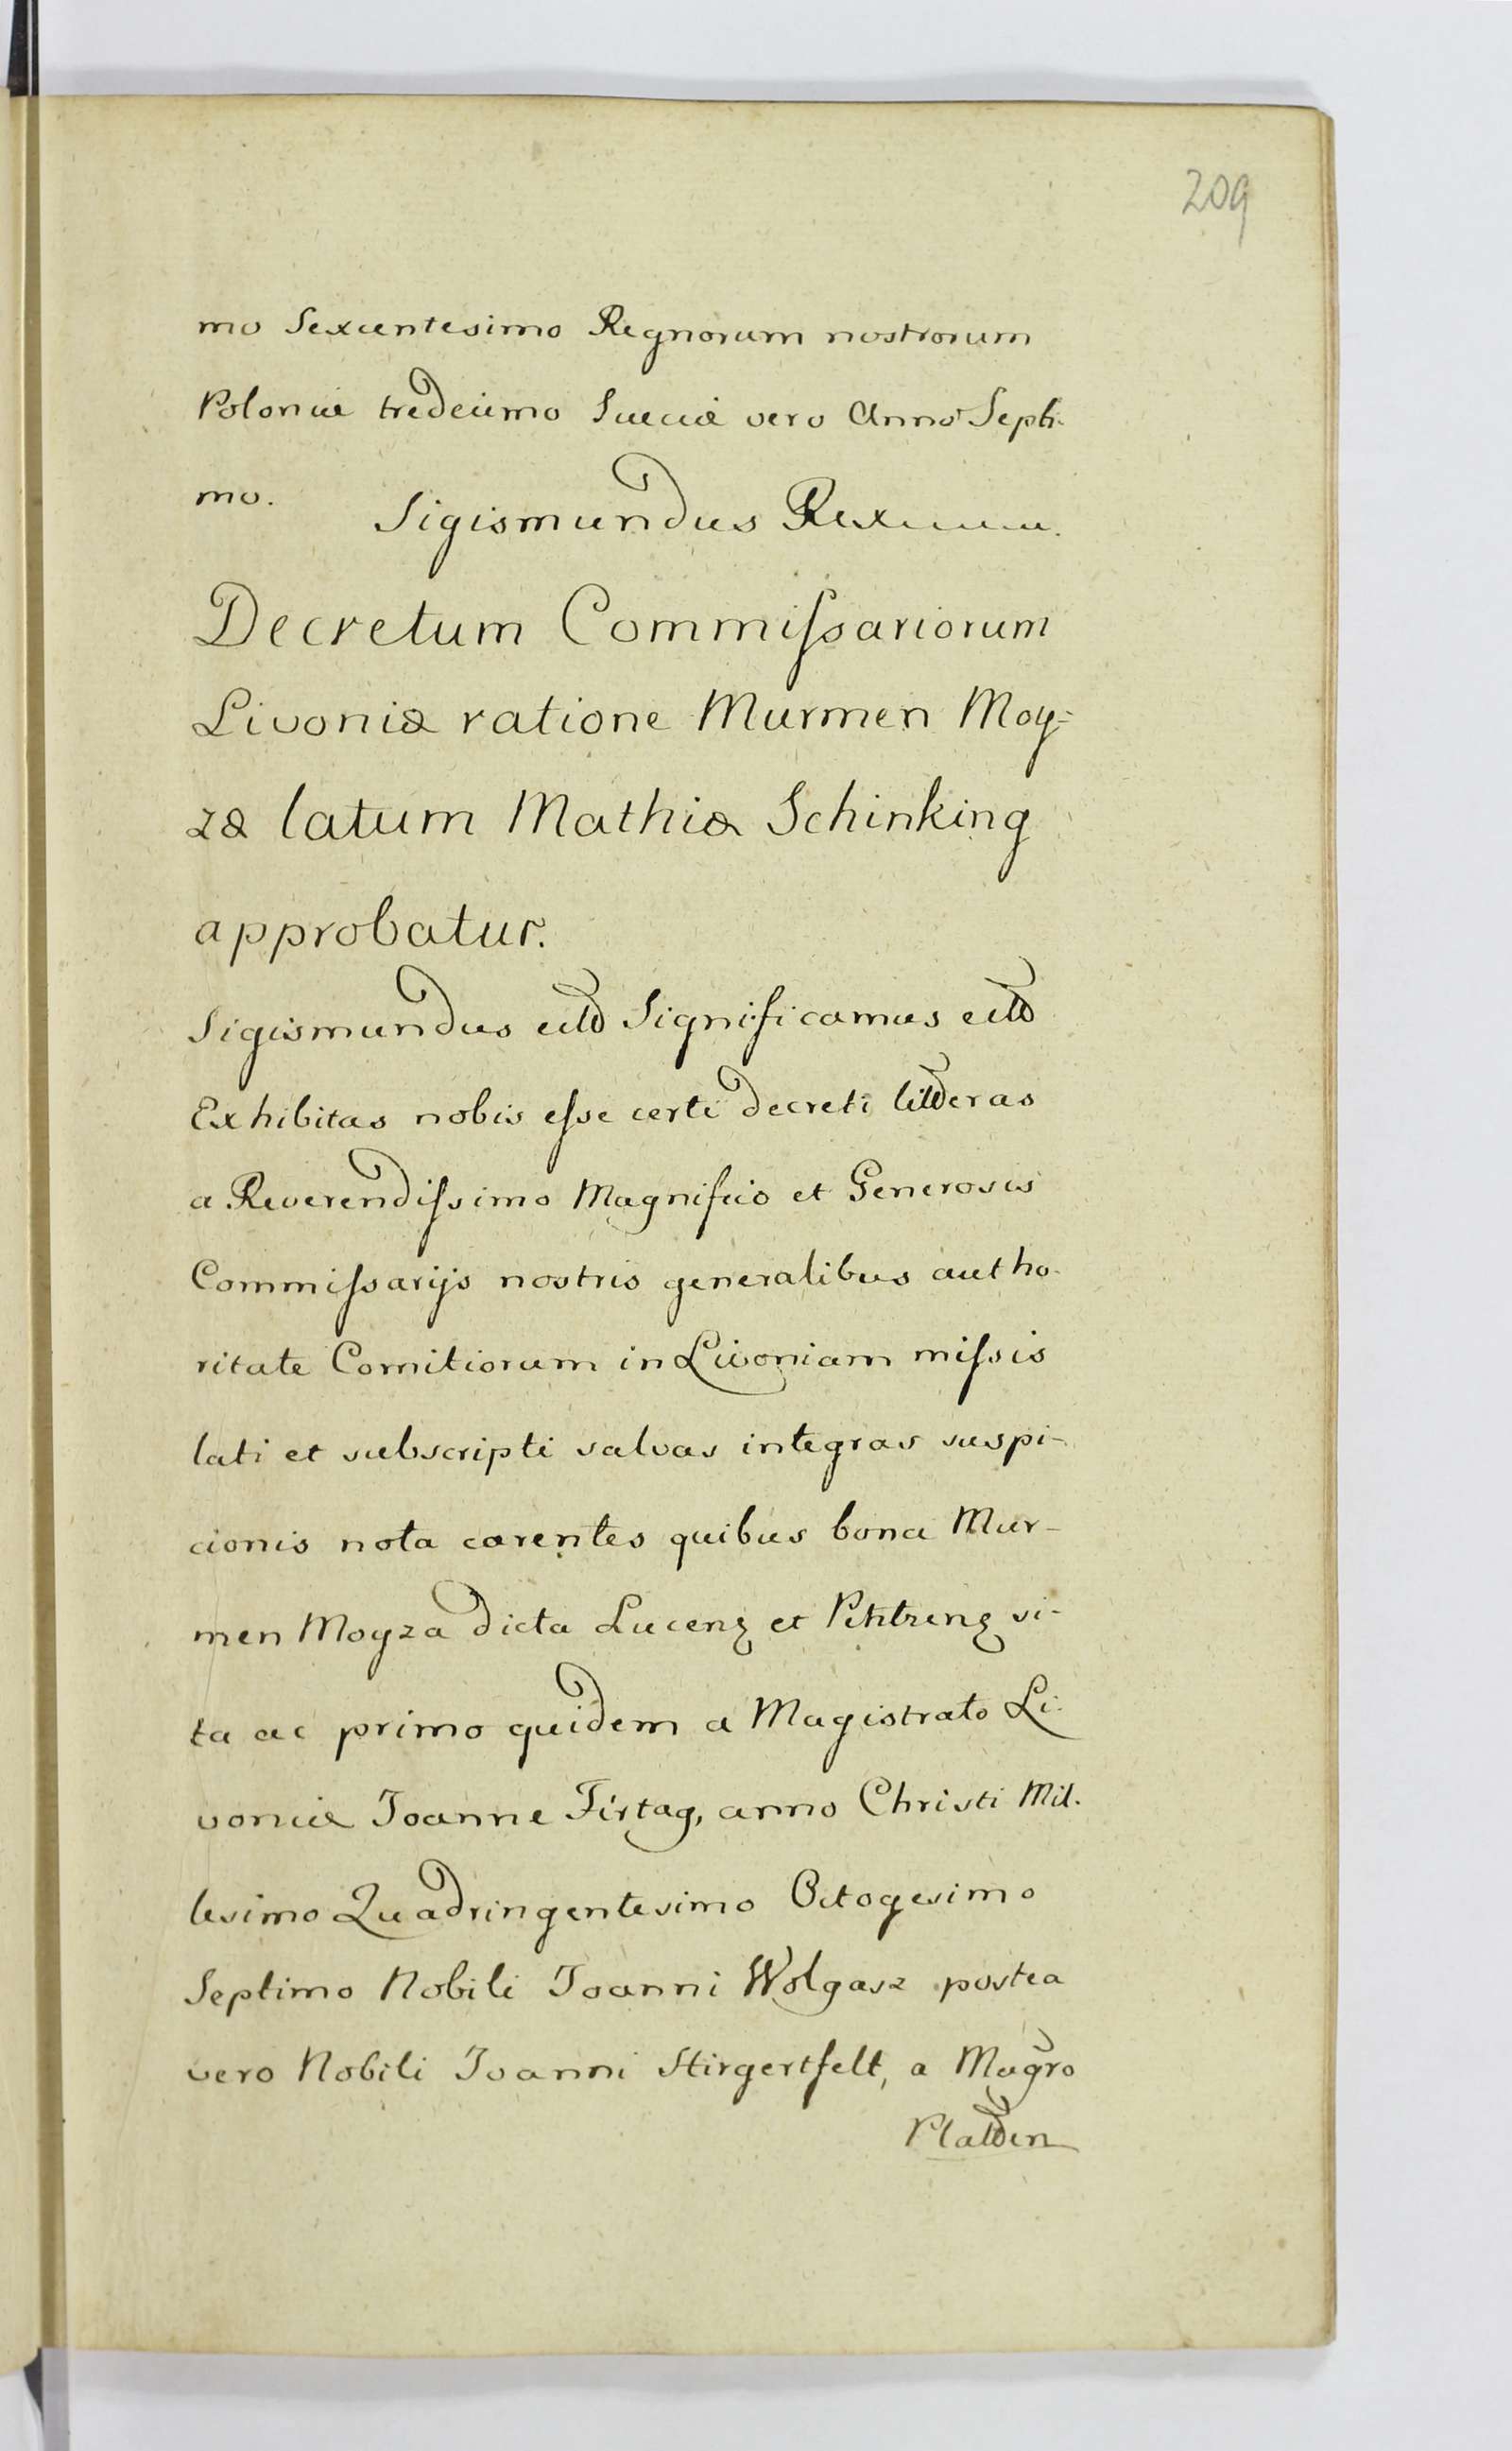 209
mo Sexcentesimo Regnorum nostrorum
Poloniæ tredecimo Sueciæ vero Anno Septi-
mo. Sigismundus Rex
Decretum Commissariorum
Livoniæ ratione Murmen Moy=
zæ latum Mathiæ Schinking
approbatur.
Sigismundus etc Significamus etc
Exhibitas nobis esse certi decreti litteras
a Reverendissimo Magnifico et Generosis
Commissarijs nostris generalibus autho-
ritate Comitiorum in Livoniam missis
lati et subscripti salvas integras suspi-
cionis nota carentes quibus bona Mur-
men Moyza dicta Lucenz et Petitrenz si-
ta ac primo quidem a Magistrato Li-
voniæ Joanne Firtag, anno Christi Mil-
lesimo Quadringentesimo Octogesimo
Septimo Nobili Joanni Wolgasz postea
vero Nobili Joanni Stirgertfelt, a Magro